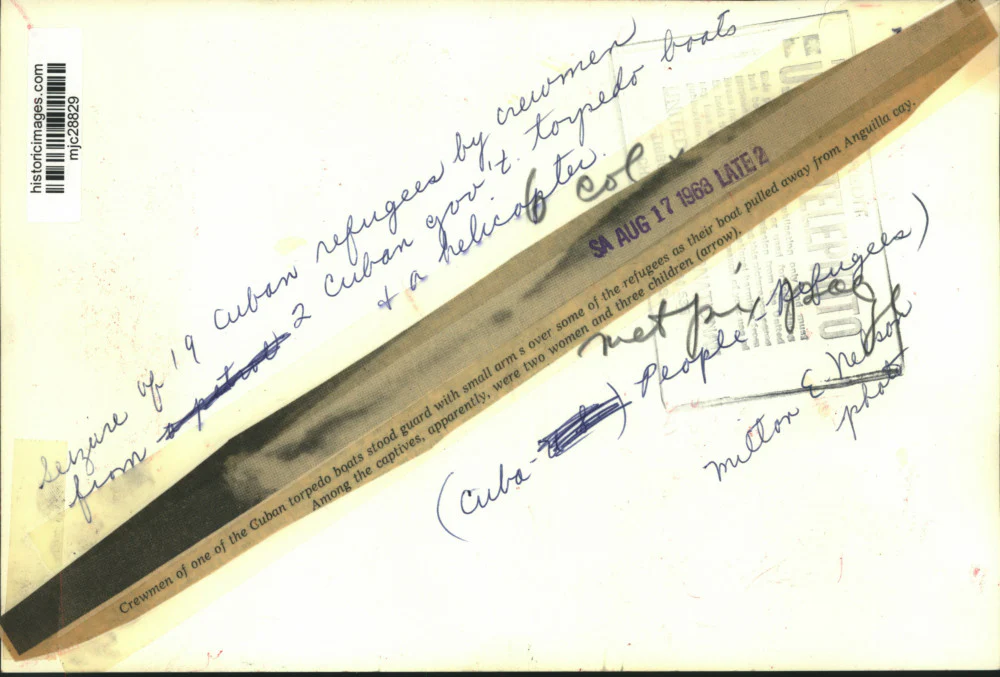 historicimages.com
mjc28829
Seizure of 19 Cuban refugees by crewmen
from 2 Cuban gov't. torpedo boats
& a helicopter.
6 col x
SA AUG 17 1963 LATE 2
Crewmen of one of the Cuban torpedo boats stood guard with small arm s over some of the refugees as their boat pulled away from Anguilla cay.
Among the captives, apparently, were two women and three children (arrow).
met pix
(Cuba- ) People - Refugees)
Milton E. Nelson
photo